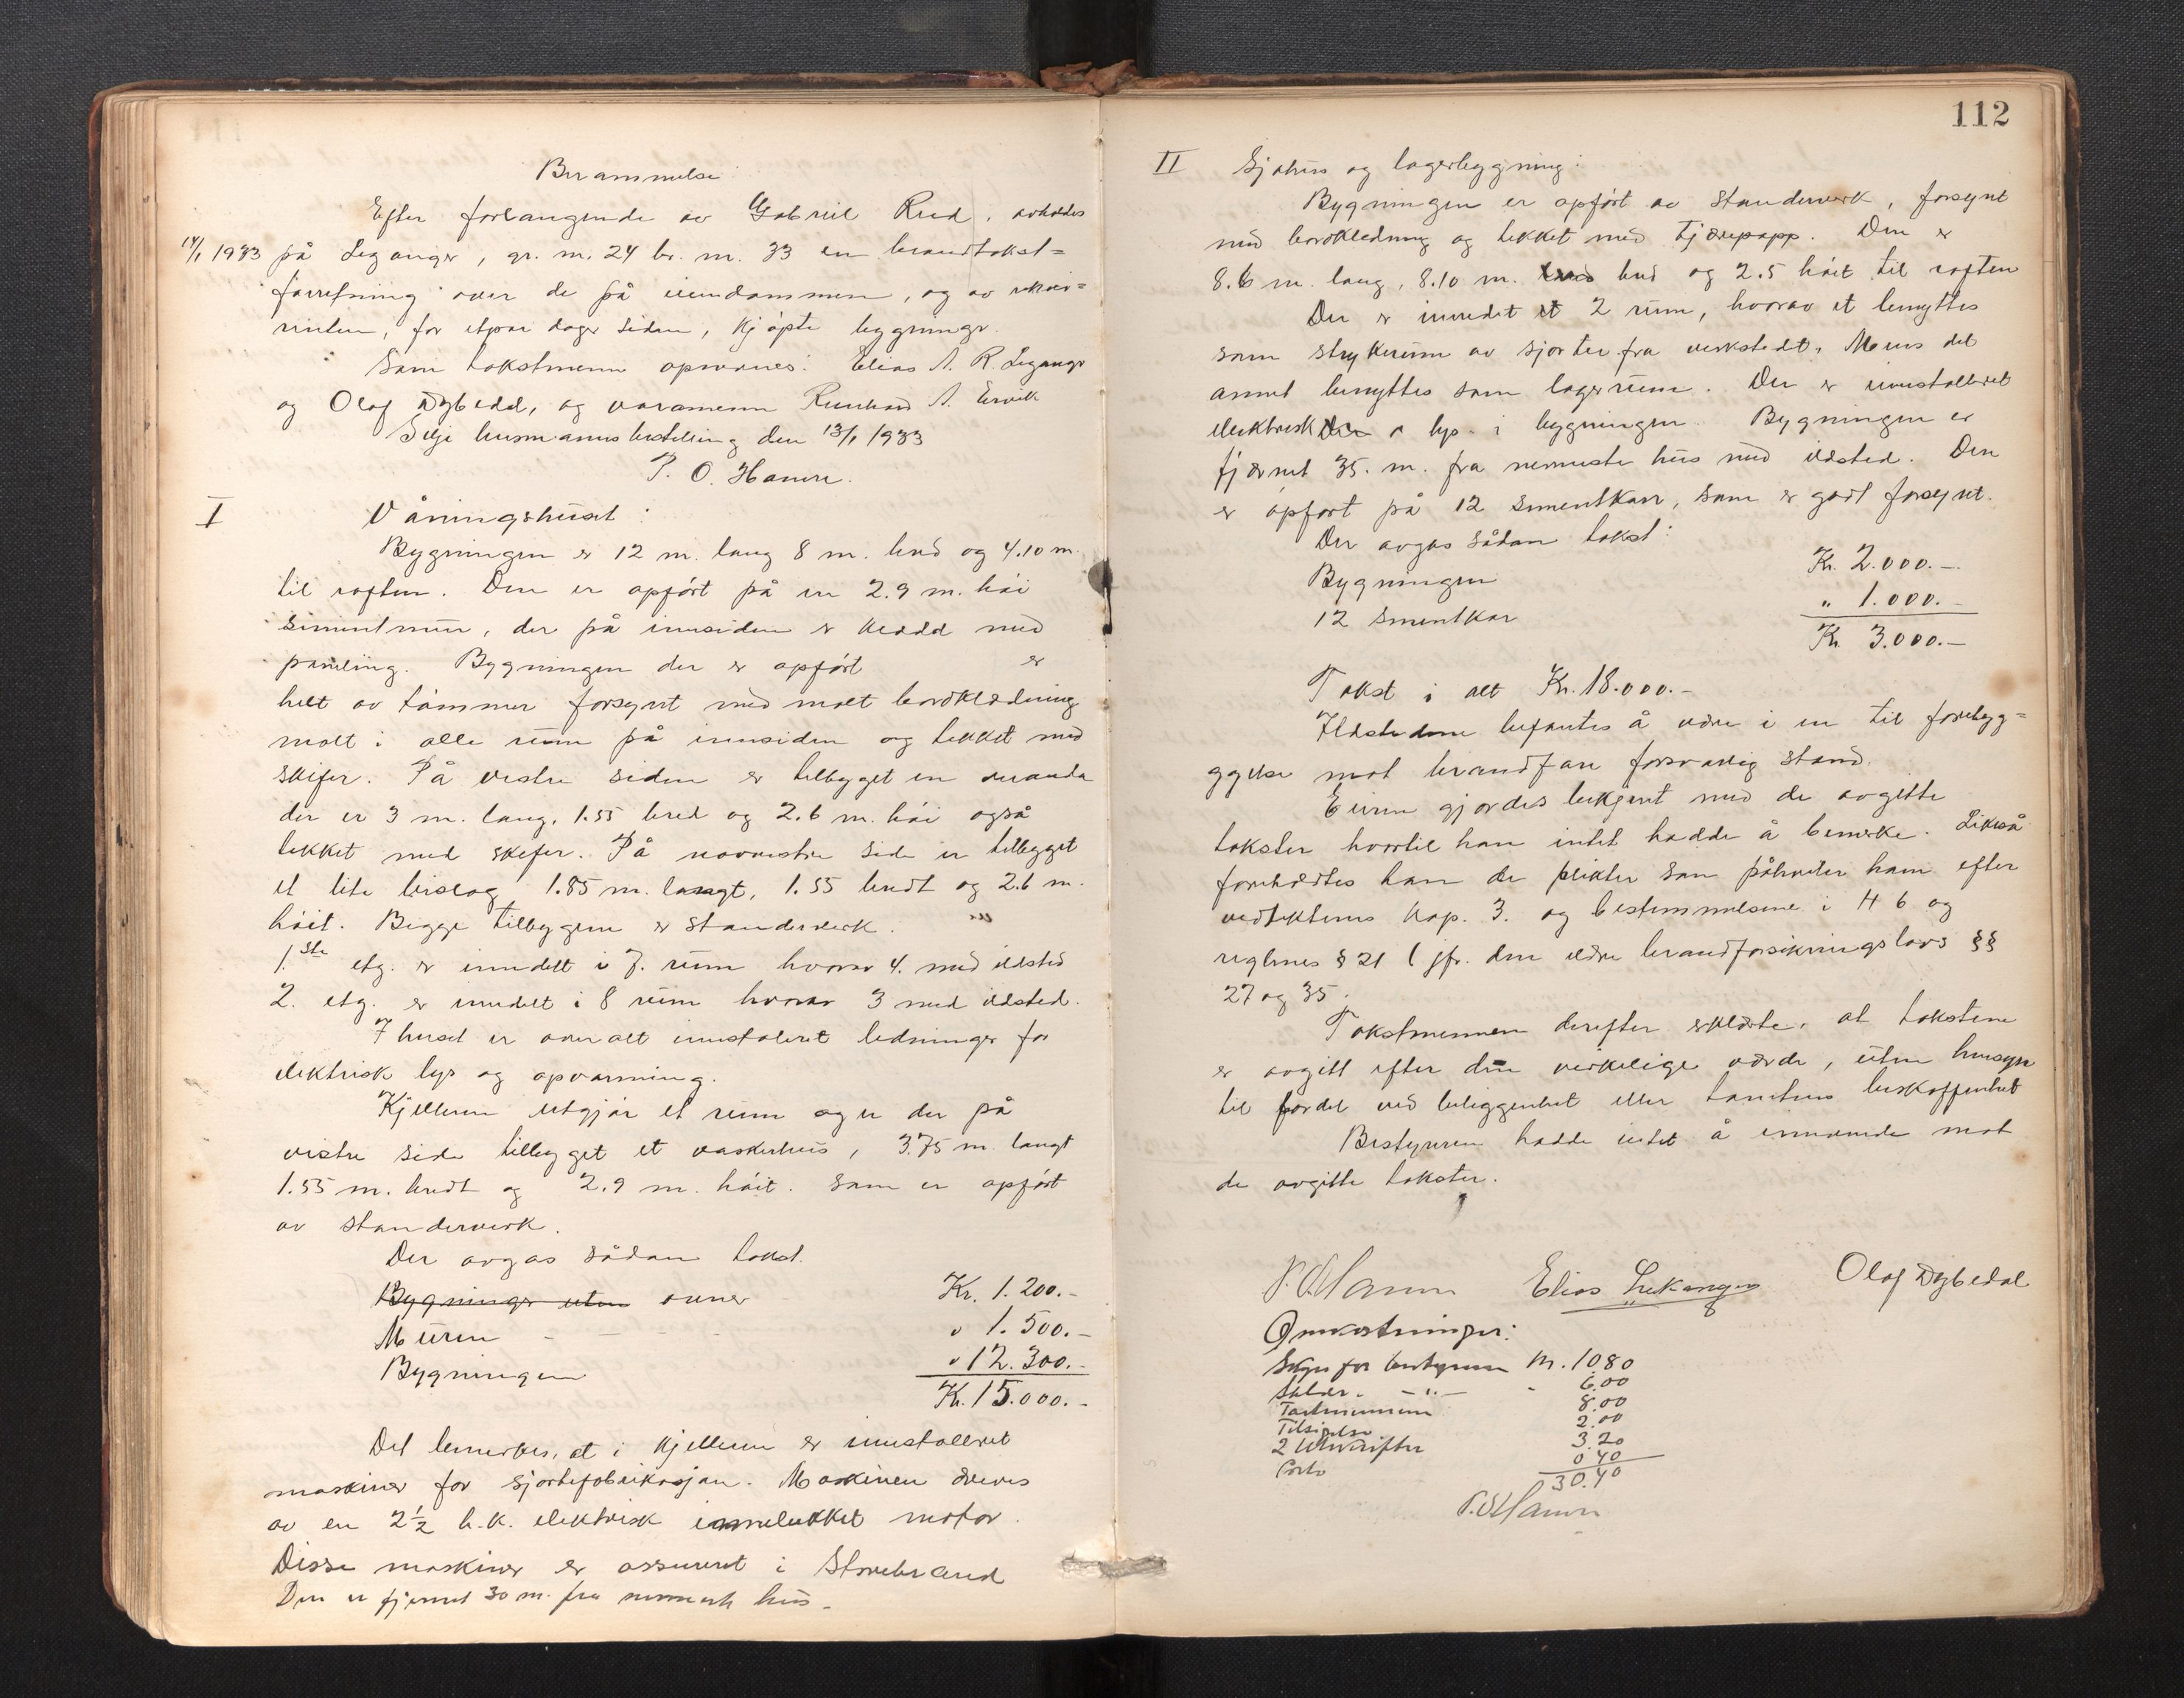 Berammelse
Efter forlangende av Gabriel Rud, avholdes
14/1 1933 på Leganger, gr. nr. 24 br. nr. 33 en brandtakst=
forretning over de på eiendommen, og av rekvi=
renten, for etpar dager siden, kjøpte bygninger.
Som takstmenn opnevnes: Elias A. R. Leganger
og Olav Dybedal, og varamenn Reinhard A. Ervik
Selje lensmannsbestilling den 13/1 1933
P. O. Hamre.
I Våningshuset:
Bygningen er 12 m. lang 8 m. bred og 4.10 m.
til raften. Den er opført på en 2.9 m. høi
sementmur, der på innsiden er kledd med
paneling. Bygningen der er opført er
helt av tømmer forsynt med malt bordkledning
malt i alle rum på innsiden og tekket med
skifer. På vestre siden er tilbygget en veranda
der er 3 m. lang, 1.55 bred og 2.6 m. høi også
tekket med skifer. På nordvestre side er tilbygget
et lite bislag 1.85 m. langt, 1.55 bredt og 2.6 m.
høit. Begge tilbygene er standerverk.
1.ste etg. er inndelt i 7. rum hvorav 4. med ildsted
2. etg. er inndelt i 8 rum hvorav 3 med ildsted.
I huset er overalt innstaleret ledninger for
elektrisk lys og opvarming.
Kjelleren utgjør et rum og er der på
vestre side tilbygget et vaskerhus, 3.75 m langt
1.55 m. bredt og 2.9 m. høit. som er opført
av standerverk.
Der avgas sådan takst.
Bygninger uten ovner Kr. 1.200.-
Muren - - - " 1.500.-
Bygningen " 12.300.-
Kr. 15.000.-
Det bemerkes, at i kjelleren er innstalleret
maskiner for skjortefabrikasjon. Maskinen drives
av en 2½ h.k. elektrisk innelukket motor.
Disse maskiner er assureret i Storebrand
Den er fjernet 30 m. fra nermeste hus.
112
II Sjøhus og lagerbygning:
Bygningen er opført av standerverk, forsynt
med bordkledning og tekket med tjærepapp. Den er
8.6 m. lang, 8.10 m. bred og 2.5 høit til raften
Der er innredet et 2 rum, hvorav et benyttes
som strykerum av sjorter fra verkstedt. Mens det
annet benyttes som lagerrum. Der er innstalleret
elektrisk lys i bygningen. Bygningen er
fjernet 35. m. fra nermeste hus med ildsted. Den
er opført på 12 sementkarr, som er godt forsynt.
Der avgas sådan takst:
Bygningen Kr. 2.000.-
12 sementkar " 1.000.-
Kr. 3.000.-
Takst i alt Kr. 18.000.-
Ildstedene befantes å være i en til forebyg=
ggelse mot brandfare forsvarlig stand.
Eieren gjordes bekjent med de avgitte
takster hvortil han intet hadde å bemerke. Likeså
foreholdtes han de plikter som påhviler ham efter
vedtektenes kap. 3. og bestemmelsene i H 6 og
reglenes § 21 (jfr. den eldre brandforsikringslovs §§
27 og 35.
Takstmennen derefter erklærte, at takstene
er avgitt efter den virkelige verdi, uten hensyn
til fordel ved beliggenhet eller tomtens beskaffenhet
Bestyreren hadde intet å innvende mot
de avgitte takster.
P.O.Hamre Elias Leikanger Olaf Dybedal
Omkostninger:
Skyss for bestyreren Kr. 10 80
Salær - " - - 6.00
Takstmennene 8.00
Tilsigelse 2.00
2 utskrifter 3.20
Porto 0 40
30.40
P.O.Hamre